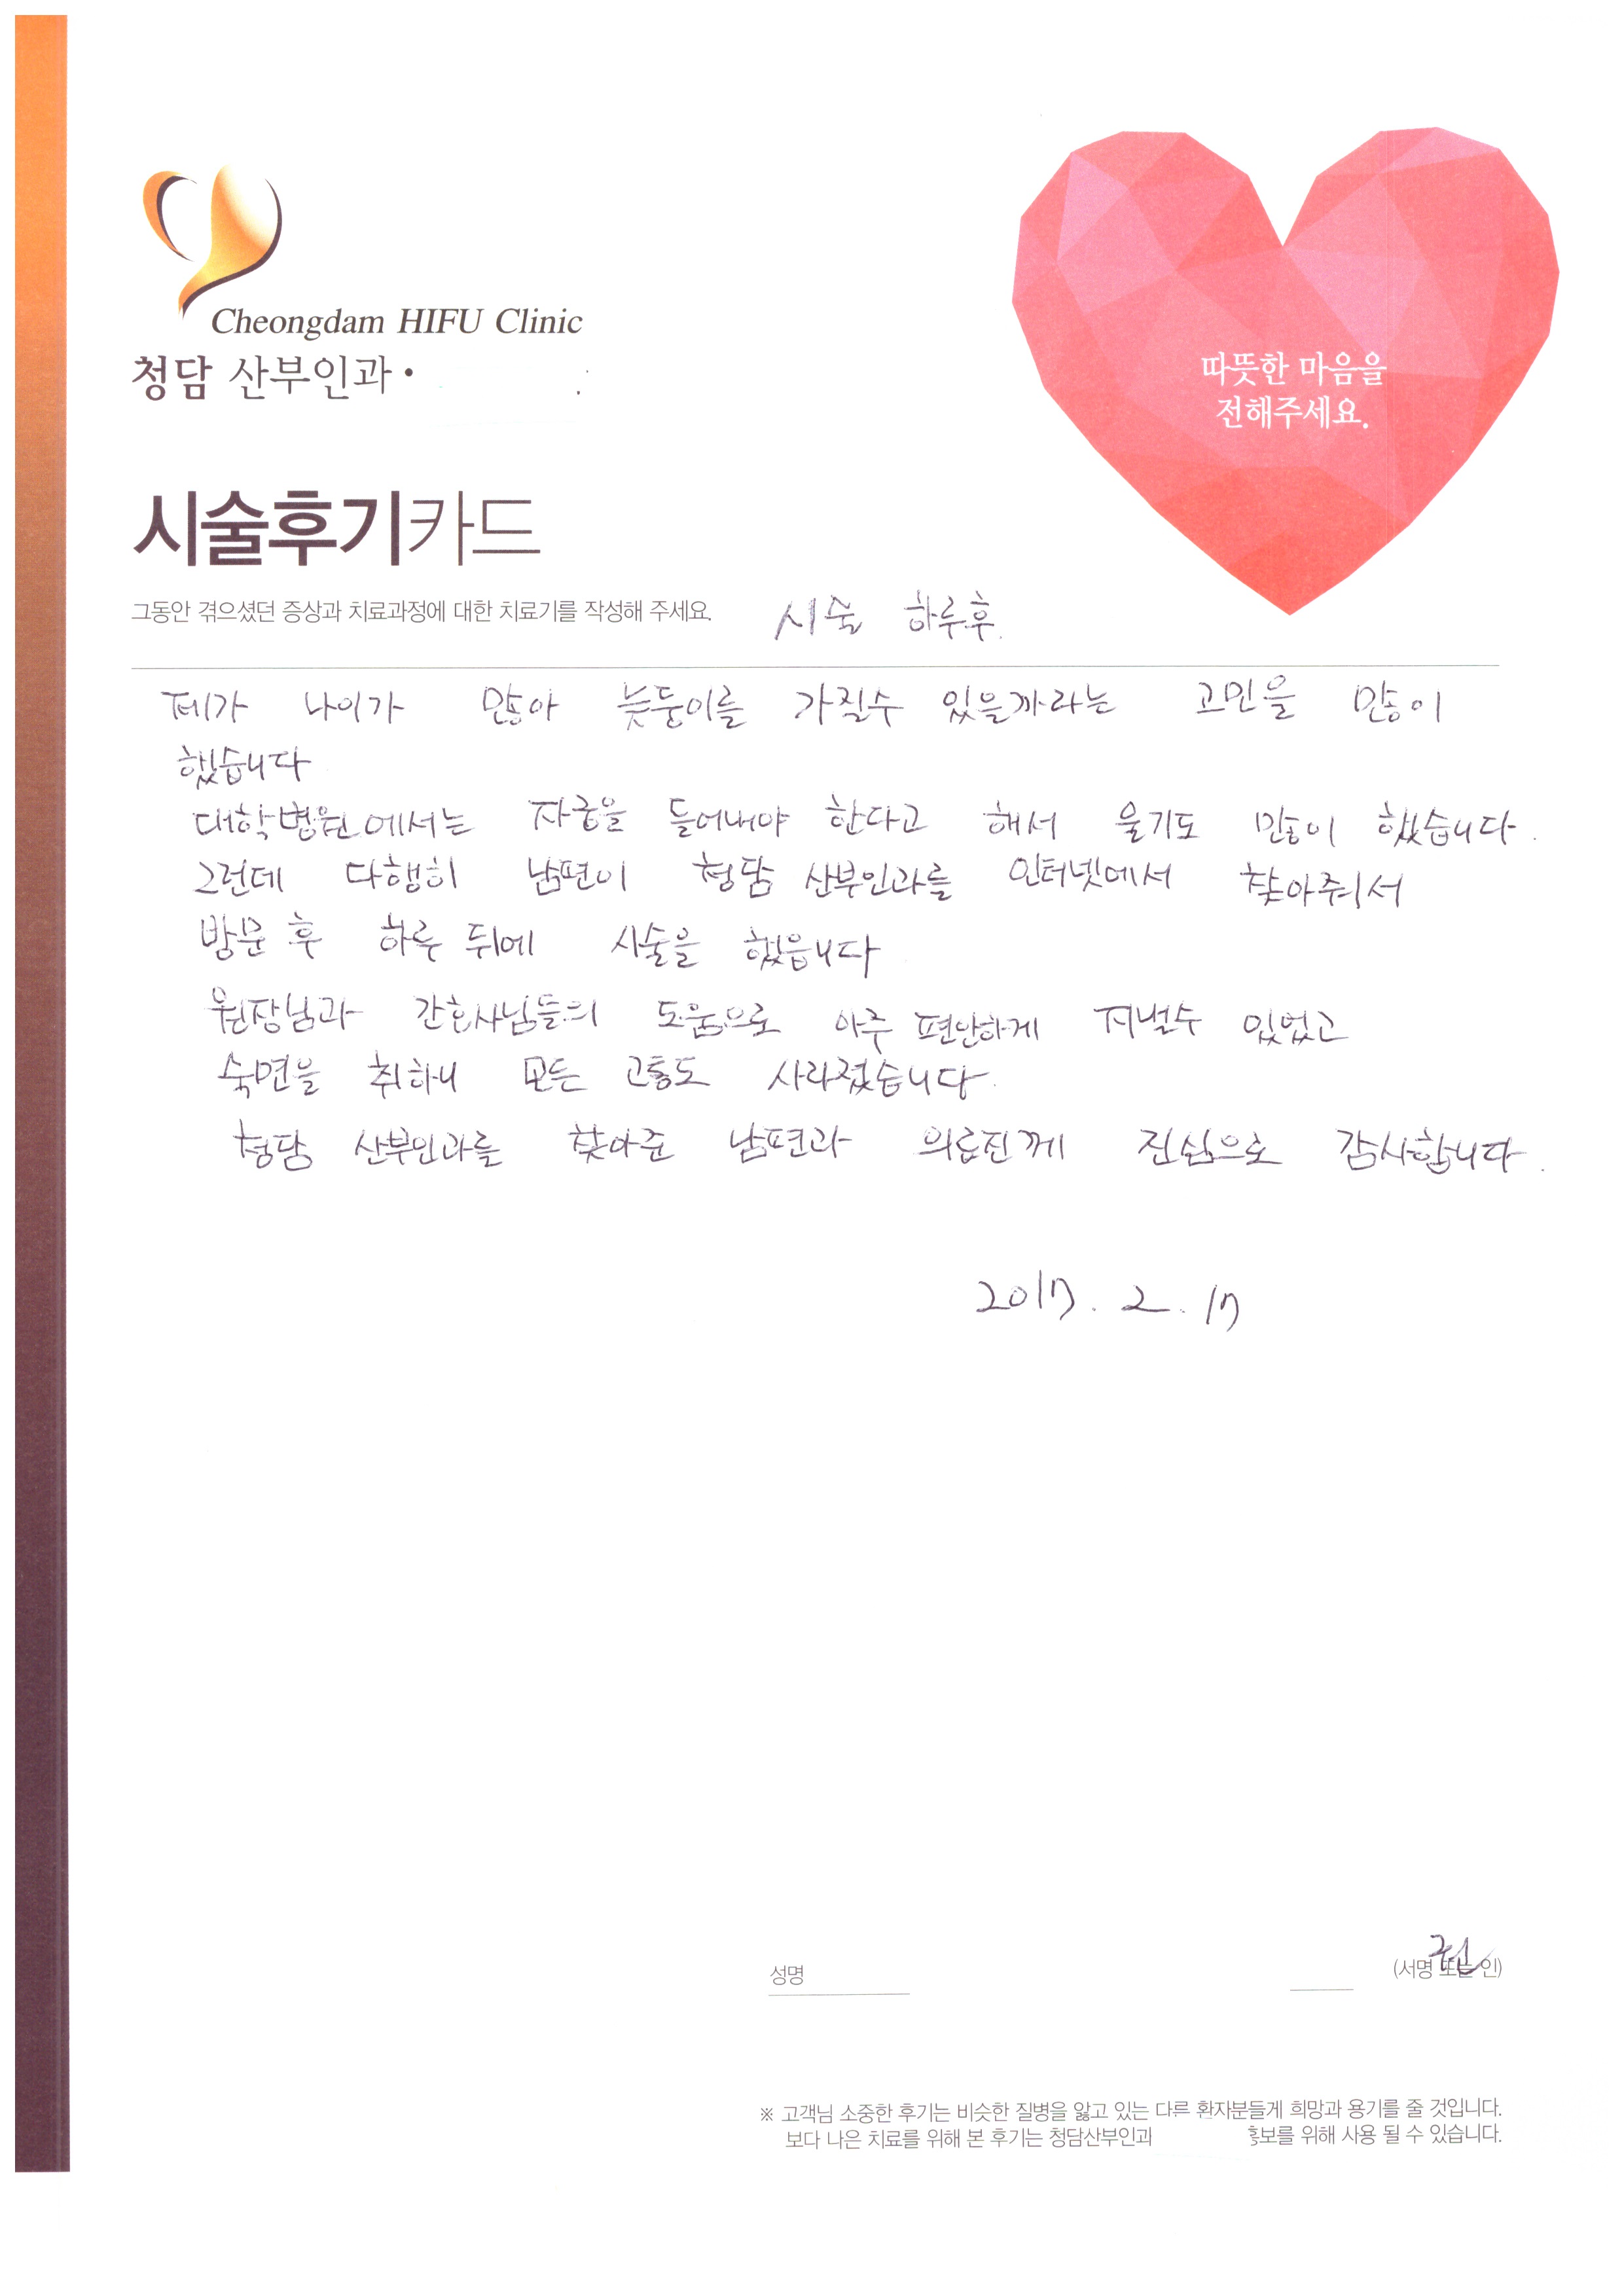 Cheongdam HIFU Clinic
청담 산부인과•
따뜻한 마음을
전해주세요.
시술후기카드
그동안 겪으셨던 증상과 치료과정에 대한 치료기를 작성해 주세요.
시술 하루후.
제가 나이가 많아 늦둥이를 가질수 있을까라는 고민을 많이
했습니다
대학병원에서는 자궁을 들어내야 한다고 해서 울기도 많이 했습니다.
그런데 다행히 남편이 청담 산부인과를 인터넷에서 찾아줘서
방문 후 하루 뒤에 시술을 했읍니다
원장님과 간호사님들의 도움으로 아주 편안하게 지낼수 있었고
숙면을 취하니 모든 고통도 사라졌습니다.
청담 산부인과를 찾아준 남편과 의료진께 진심으로 감사합니다.
2017. 2. 17
성명
권
(서명 또는 인)
※ 고객님 소중한 후기는 비슷한 질병을 앓고 있는 다른 환자분들게 희망과 용기를 줄 것입니다.
보다 나은 치료를 위해 본 후기는 청담산부인과 홍보를 위해 사용 될 수 있습니다.